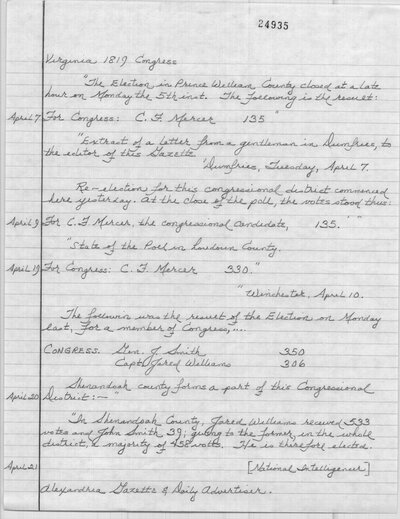 24935
Virginia 1819 Congress
"The Election in Prince William County closed at a late
hour on Monday the 5th inst. The following is the result:
April 7 For Congress: C. F. Mercer 135 "
"Extract of a letter from a gentleman in Dumfries, to
the editor of this Gazette.
'Dumfries, Tuesday, April 7.
Re-election for this congressional district commenced
here yesterday. At the close of the poll, the votes stood thus:
April 9 For C. F. Mercer, the congressional candidate, 135. ' "
"State of the Poll in Loudoun County.
April 19 For Congress: C. F. Mercer 330."
"Winchester, April 10.
The followin was the result of the Election on Monday
last, for a member of Congress,....
CONGRESS. Gen. J. Smith 350
Capt. Jared Williams 306
Shenandoah county forms a part of this Congressional
April 20 District:— "
"In Shenandoah County, Jared Williams received 533
votes and John Smith 39; giving to the former, in the whole
district, a majority of 458 votes. He is therefore elected.
April 21 [National Intelligencer]
Alexandria Gazette & Daily Advertiser.